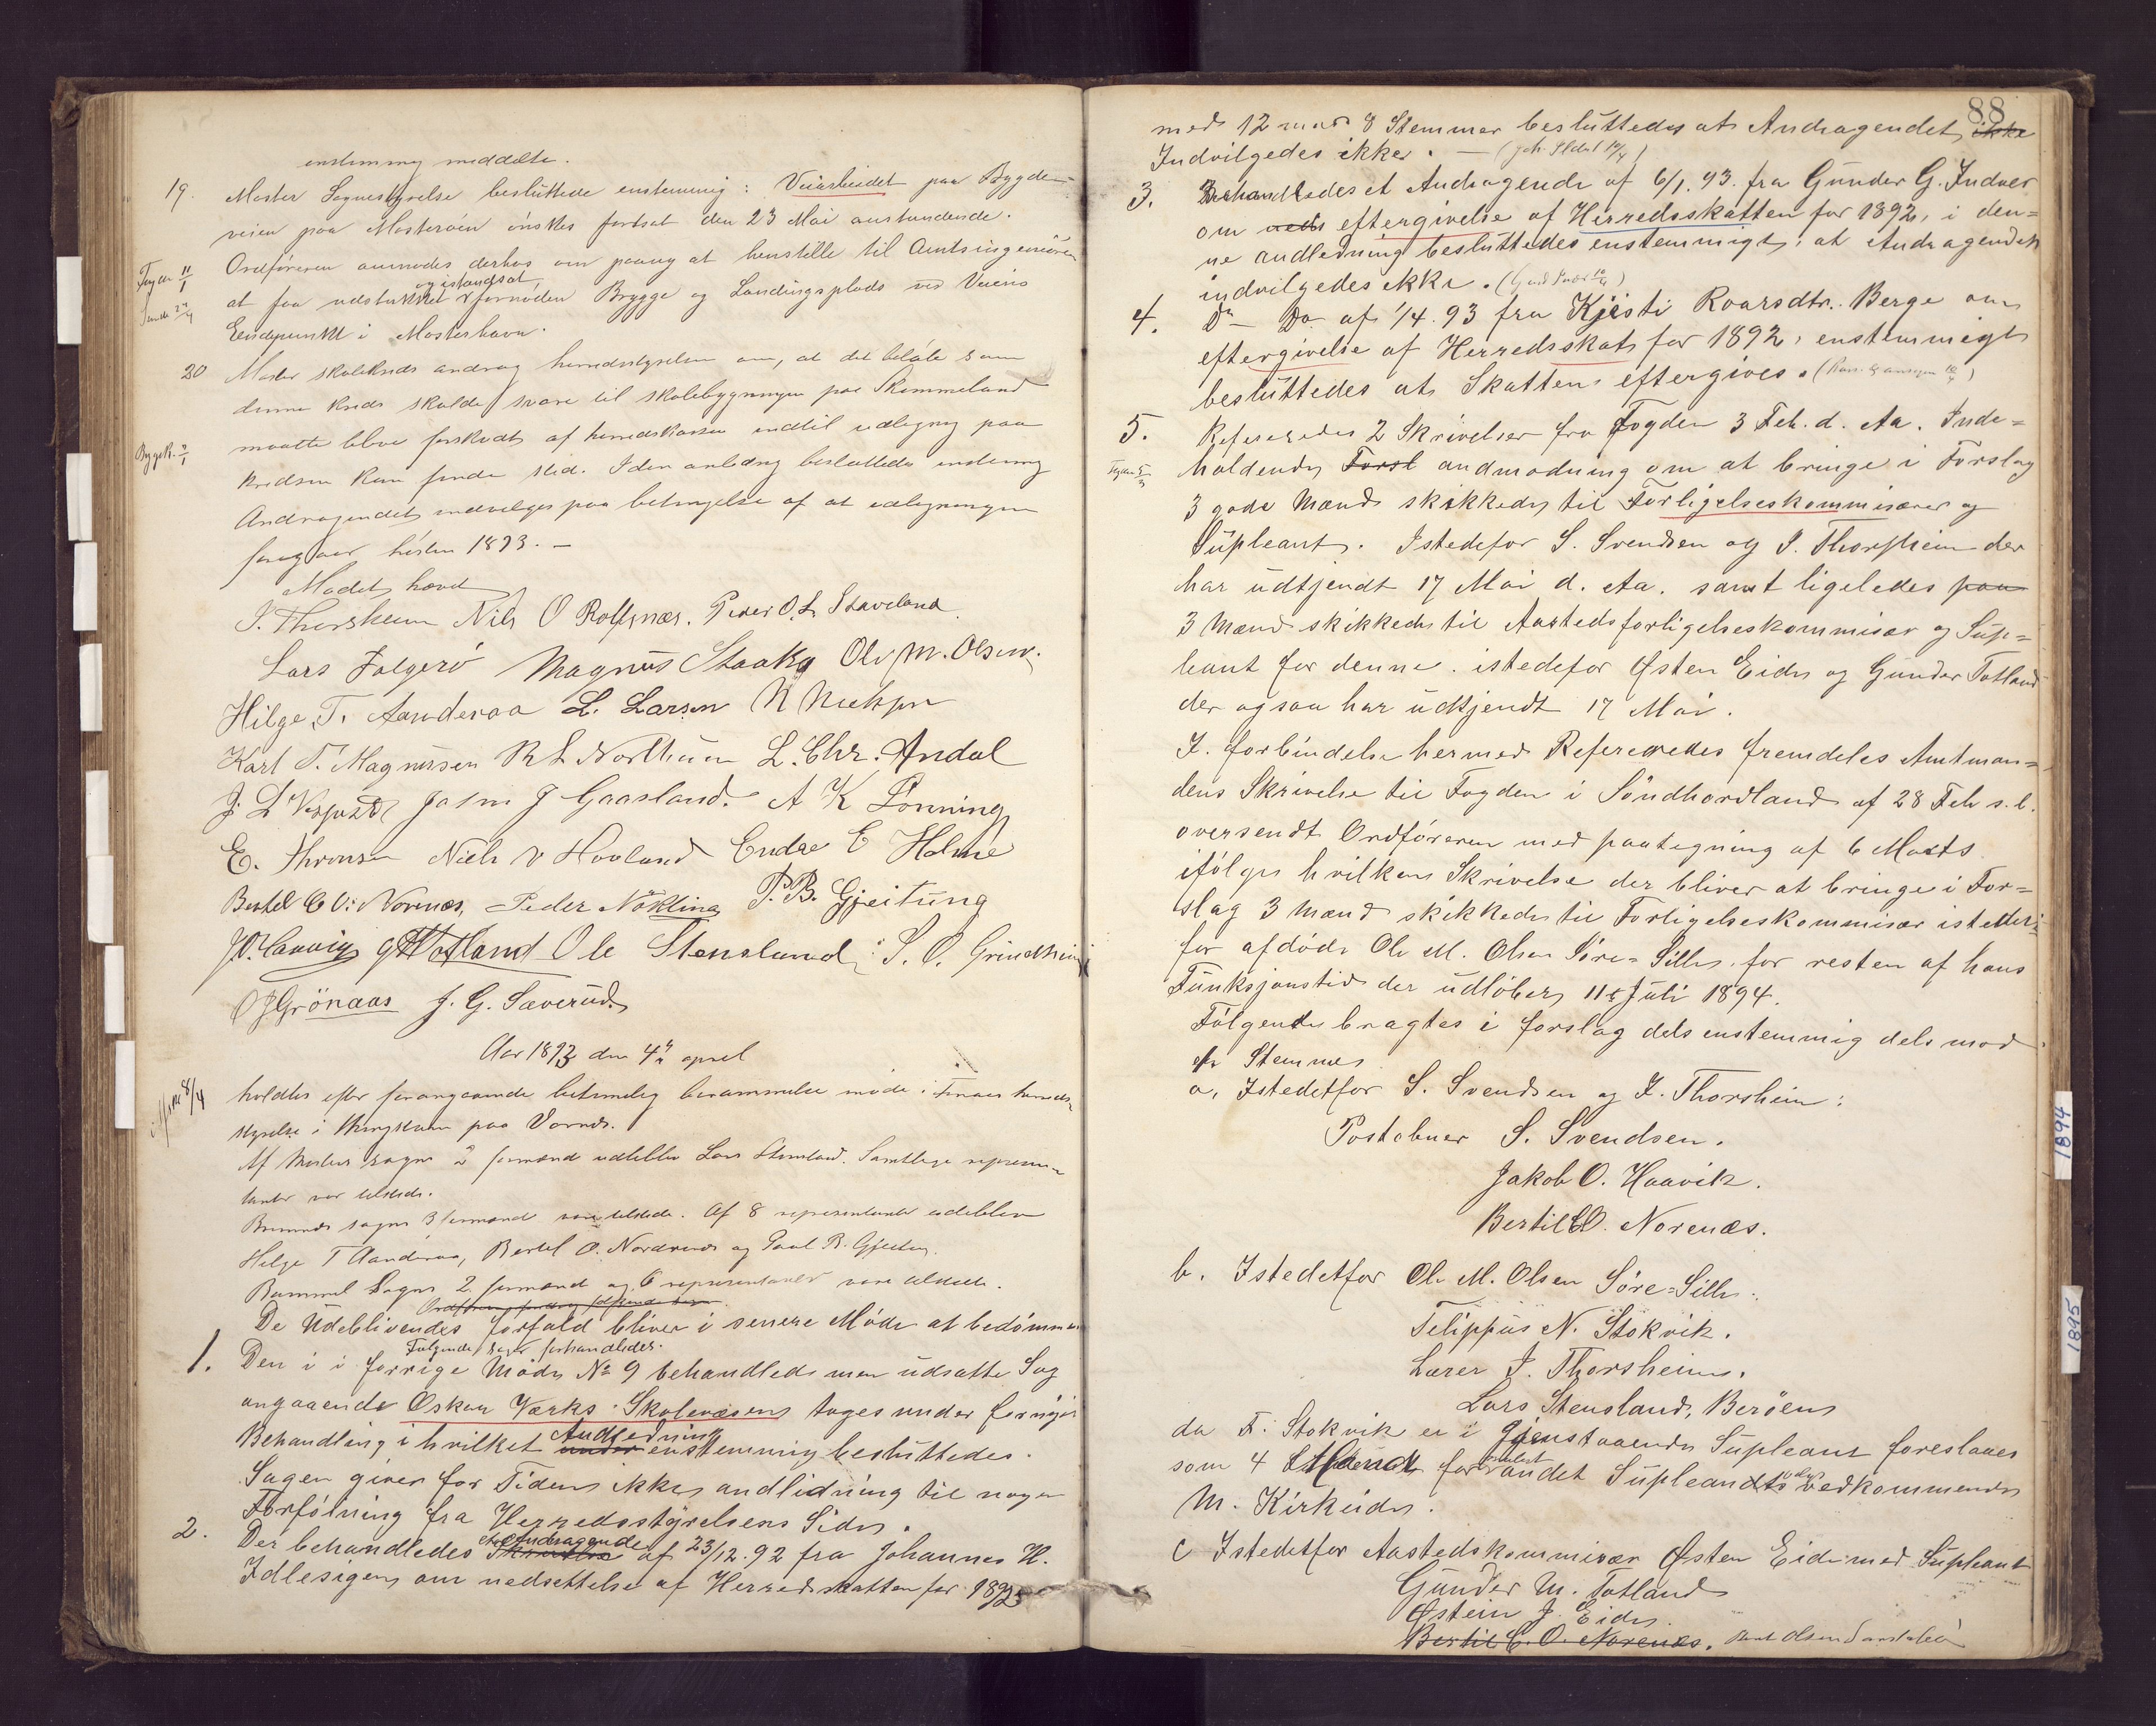 enstemmig meddelte.
19. Moster Sognestyrelse besluttede enstemmig: Veiarbeidet paa Bygde-
veien paa Mosterøen ønskes fortsat den 23 Mai anstundende.
Ordføreren anmodes derhos om paany at henstille til Amtsingeniøren
Fogden 11/1
at faa udstukket og istandsat fornøden Brygge og Landingsplads ved Veiens
Endepunkt i Mosterhavn.
20 Moster skolekreds androg herredsstyrelsen om, at det beløb som
denne kreds skulde svare til skolebygningen paa Skimmeland
maatte blive forskudt af herredskassen indtil udligning paa
kredsen kan finde sted. I den anledng besluttedes enstemmig
Andragendet indvilges paa betingelse af at udligningen
foregaar høsten 1893. -
Mødet hævet
I. Thorsheim Nils O Rolfsnæs. Peder O. L. Staveland
Lars Folgerö Magnus Staaka Ole M. Olsen.
Hilge T. Aanderaa L. Larsen N Nielsen
Karl T. Magnusen R L Northuun L. Chr. Andal
J. L Vespestd Jahn J Gaasland. A K Lönning
E. Thronsen Niels V Hovland Endre E Holme
Bertel C O. Norenæs, Peder Nökling P. B. Gjeitung
J O. Haavig G M Totland Ole Stensland S. O. Grindheim
O J Grönaas J. G. Sæverud
Aar 1893 den 4de april
8/4
holdtes efter forangaaende betimelig berammelse møde i Finaas herreds-
styrelse i thingstuen paa Vornæs.
Af Mosters sogns 2 formænd udeblev Lars Stensland. Samtlige represen-
tanter var tilstede.
Bremnes sogns 3 formænd vare tilstede. Af 8 representanter udeblev
Helge T Aanderaa, Bertel O. Nordenæs og Paul B. Gjeitung.
Bømmel Sogns 2 formænd og 6 representanter vare tilstede.
De Udeblivendes forfald bliver i senere Møde at bedømme
Følgende sager forhandledes.
1. Den i i forrige Møde No 9 behandlede men udsatte Sag
angaaende Oskar Værks Skolevæsen toges under fornyet
Behandling i hvilket under Andledning enstemmig besluttedes.
Sagen giver for Tiden ikke andlidning til nogen
Forføining fra Herredsstyrelsens Side.
2. Der behandledes Skrivelse et Andragende af 23/12.92 fra Johannes H.
Idlesigen om nedsettelse af Herredsskatten for 1892
88
med 12 mod 8 Stemmer besluttedes at Andragendet ikke
Indvilgedes ikke. -
3. Behandledes et Andragende af 6/1.93. fra Gunder G. Indvær
om neds eftergivelse af Herredsskatten for 1892, i den=
ne andledning besluttedes enstemmigt, at Andragendet
indvilgedes ikke.
4. Do - Do af 1/4.93 fra Kjisti Roarsdtr. Berge om
eftergivelse af Herredsskat for 1892, enstemmigt
besluttedes at Skatten eftergives.
5. Refereredes 2 Skrivelser fra Fogden 3 Feb. d. Aa. Inde=
holdende Forsl andmodning om at bringe i Forslag
3 gode Mænd skikkede til Forligelseskommisærer og
Supleant. Istedefor S. Svendsen og I. Thorsheim der
har udtjendt 17 Mai d. Aa. samt ligeledes paa
3 Mænd skikkede til Aastedsforligelseskommisær og Sup=
leant for denne. istedefor Østen Eide og Gunder Totland
der ogsaa har udtjendt 17 Mai.
I. forbindelse hermed Refereredes fremdeles Amtman=
dens Skrivelse til Fogden i Söndhordland af 28 Feb s. l.
oversendt Ordføreren med paategning af 6 Marts
ifølge hvilken Skrivelse der bliver at bringe i For=
slag 3 Mænd skikkede til Forligelseskommisær istedet=
for afdøde Ole M. Olsen Søre-Sille for resten af hans
Funksjonstid der udløber 11te Juli 1894.
Følgende bragtes i forslag dels enstemmig dels mod
en Stemme
a, Istedetfor S. Svendsen og I. Thorsheim:
Postobner S. Svendsen.
Jakob O. Haavik.
Bertil C O. Norenæs.
b. Istedetfor Ole M. Olsen Søre=Sille.
Filippus N. Stokvik.
Lærer I. Thorsheim.
Lars Stensland, Berøen
da F. Stokvik er i Gjenstaaende Supleant foreslaaes
som 4 for andet Supleandts vedkommende
M. Kirkeide.
c Istedetfor Aastedskommisær Østen Eide med Supleant
Gunder M. Totland
Østein J. Eide
Bertil C. O. Norenæs.
1894
1895